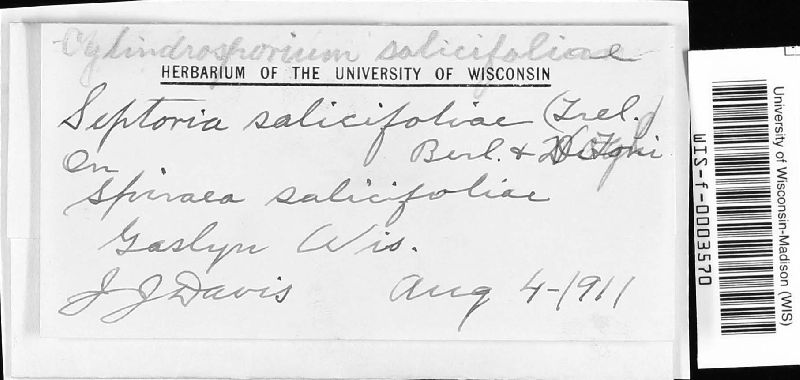 Cylindrosporium salicifoliae
HERBARIUM OF THE UNIVERSITY OF WISCONSIN
Septoria salicifoliae (Trel.)
Berl. &
on
Spiraea salicifoliae
Gaslyn Wis.
J J Davis Aug 4-1911
University of Wisconsin-Madison (WIS)
WIS-f-0003570